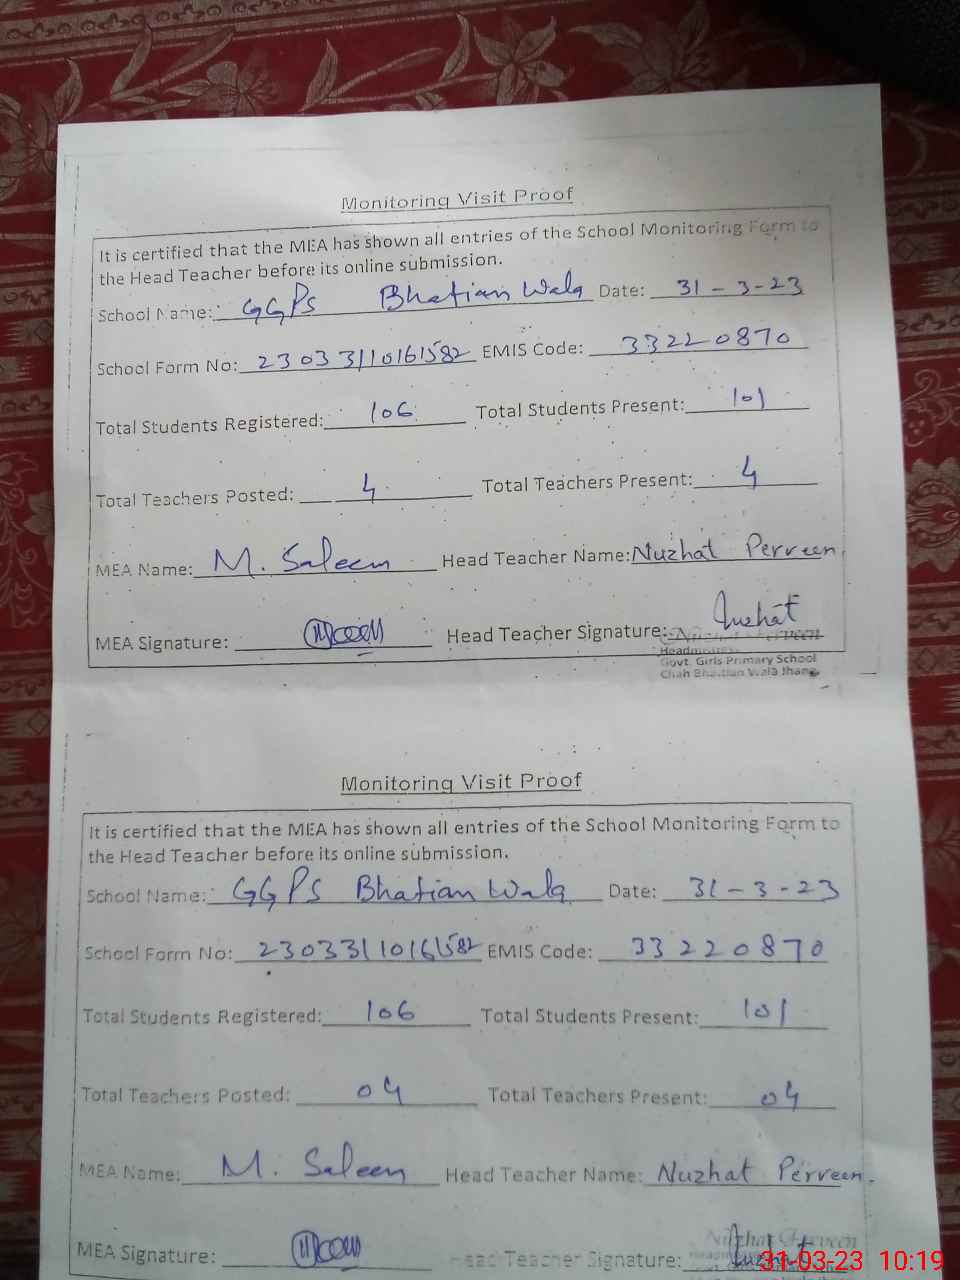 Monitoring Visit Proof
It is certified that the MEA has shown all entries of the School Monitoring Form to
the Head Teacher before its online submission.
School Name: GGPS Bhatian Wala Date: 31-3-23
School Form No: 23033110161582 EMIS Code: 33220870
Total Students Registered: 106 Total Students Present: 101
Total Teachers Posted: 4 Total Teachers Present: 4
MEA Name: M. Saleem Head Teacher Name: Nuzhat Perveen
MEA Signature: Head Teacher Signature: Nuzhat
Govt. Girls Primary School
Chah Bhatian Wala Jhang
Monitoring Visit Proof
It is certified that the MEA has shown all entries of the School Monitoring Form to
the Head Teacher before its online submission.
School Name: GGPS Bhatian Wala Date: 31-3-23
School Form No: 23033110161582 EMIS Code: 33220870
Total Students Registered: 106 Total Students Present: 101
Total Teachers Posted: 04 Total Teachers Present: 04
MEA Name: M. Saleem Head Teacher Name: Nuzhat Perveen.
MEA Signature: Head Teacher Signature:
31-03-23 10:19